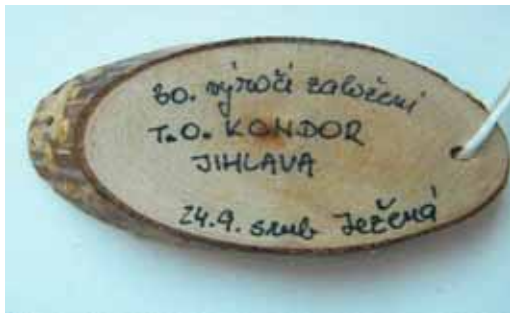 30. výročí založení
T.O. KONDOR
JIHLAVA
24.9. srub Ježená